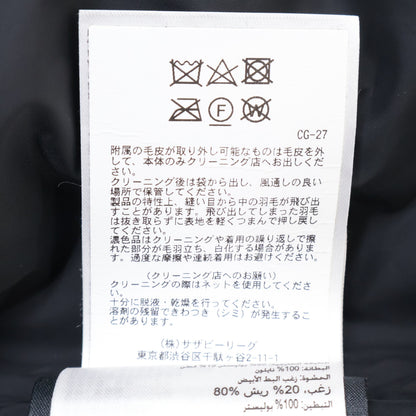 F
W
CG-27
附属の毛皮が取り外し可能なものは毛皮を外
して、本体のみクリーニング店へお出しくださ
い。
クリーニング後は袋から出し、風通しの良い
場所で保管してください。
製品の特性上、縫い目から中の羽毛が飛び出
すことがあります。飛び出してしまった羽毛
は抜き取らずに表地を軽くつまんで押し戻し
てください。
濃色品はクリーニングや着用の繰り返しで擦
れた部分が毛羽立ち、白化する場合がありま
す。過度な摩擦や連続着用はお避けください。
(クリーニング店へのお願い)
クリーニングの際はネットを使用してくださ
い。
十分に脱液・乾燥を行ってください。
溶剤の残留できわつき(シミ)が発生するこ
とがあります。
(株)サザビーリーグ
東京都渋谷区千駄ヶ谷2-11-1
البطانة: 100% نايلون
الحشوة: زغب البط الأبيض
80% زغب، 20% ريش
التبطين: 100% بوليستر